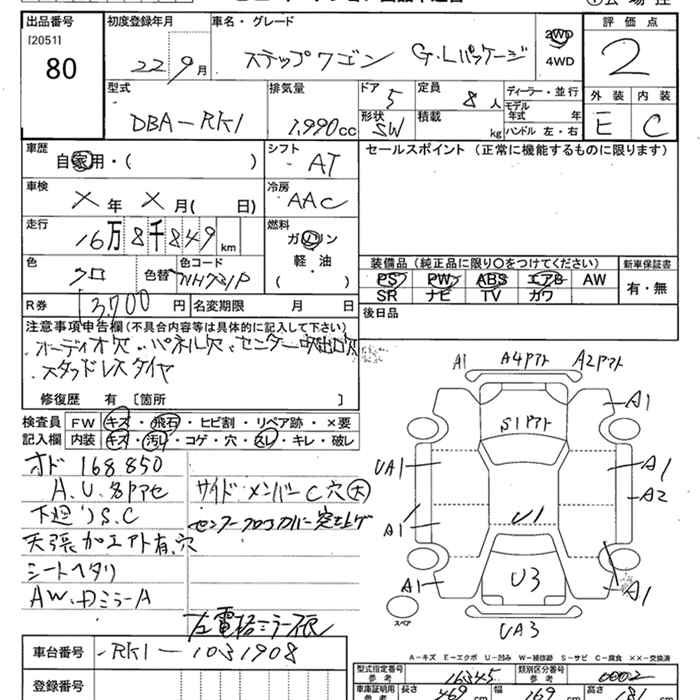 出品番号 初度登録年月 車名・グレード 評価点
[2051] 80 22 9月 ステップワゴン G・Lパッケージ 2WD 4WD 2
型式 排気量 ドア 5 定員 8人 ディーラー・並行 外装 内装
DBA-RK1 1,990cc 形状 SW 積載 kg モデル年式 年 ハンドル 左・右 E C
車歴 自家用・( ) シフト AT セールスポイント (正常に機能するものに限ります)
車検 X年 X月( 日) 冷房 AAC
走行 16万8千849km 燃料 ガソリン 軽・油 ( )
色 クロ 色替 色コード NH731P 装備品 (純正品に限り○をつけてください) 新車保証書
PS PW ABS エアB AW 有・無
SR ナビ TV カワ
R券 13,700円 名変期限 月 日 後日品
注意事項申告欄(不具合内容等は具体的に記入して下さい)
オーディオ欠、パネル欠、センター吹出口欠
スタッドレスタイヤ
修復歴 有 [箇所 ]
検査員 FW キズ・飛石・ヒビ割・リペア跡・×要
記入欄 内装 キズ・汚レ・コゲ・穴・スレ・キレ・破レ
オド 168850
A.U.各Pアセ サイドメンバーC穴(大)
下廻りS.C
天張加エアト有、穴
シートヘタリ
AW、ドミラーA
左電格ミラー不良
A1 A4アト A2アト
S1アト A1
UA1 A1
A2
A1 U1
A1 U3 A1
スペア UA3
A-キズ E-エクボ U-凹み W-補修跡 S-サビ C-腐食 ××-交換済
車台番号 -RK1-1031908
型式指定番号 参考 16345 類別区分番号 参考 0002
登録番号 車庫証明用 参考 長さ 469cm 幅 169cm 高さ 181cm